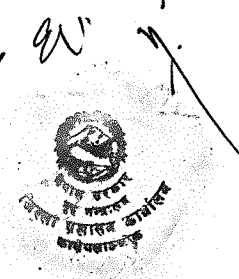 नेपाल सरकार
गृह मन्त्रालय
जिल्ला प्रशासन कार्यालय
काभ्रेपलाञ्चोक